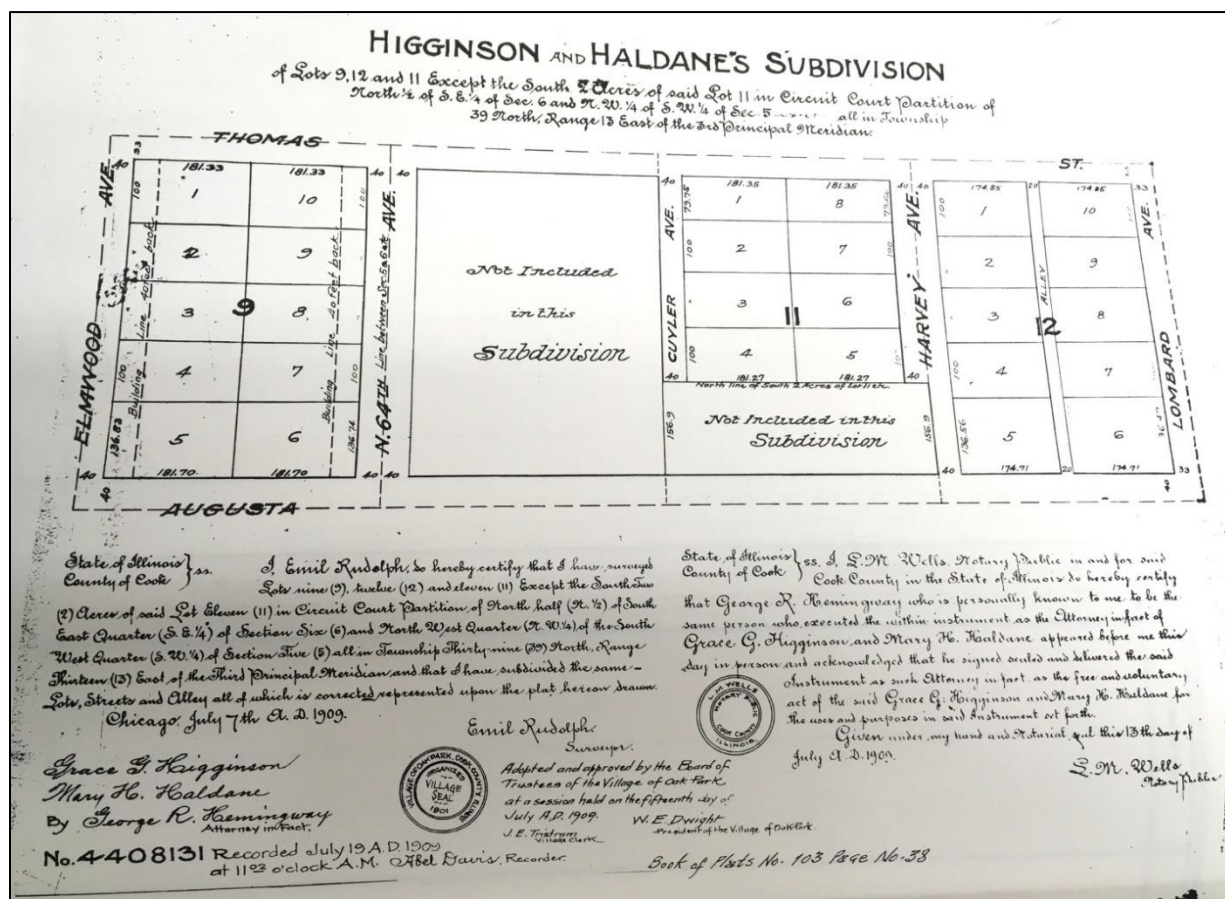 HIGGINSON AND HALDANE'S SUBDIVISION
of Lots 9, 12 and 11 Except the South 2 Acres of said Lot 11 in Circuit Court Partition of
North ½ of S.E. ¼ of Sec. 6 and N.W. ¼ of S.W. ¼ of Sec. 5 all in Township
39 North, Range 13 East of the 3rd Principal Meridian.
THOMAS ST.
40 33 181.33 181.33 40 40 40 181.35 181.35 40 40 174.85 20 174.85 33
ELMWOOD AVE.
N. 64TH AVE.
CUYLER AVE.
HARVEY AVE.
LOMBARD AVE.
ALLEY
100 1 10 100
2 9
3 9 8
100 4 7 100
136.82 5 6 136.74
40 181.70 181.70 40 40
40
Building Line 40 feet back
Building Line 40 feet back
Line between Sec. 5 & 6
Not Included
in this
Subdivision
79.75 1 8
100 2 7 100
3 11 6
100 4 5 100
40 181.27 181.27 40
North line of South 2 Acres of Lot 11
156.9 Not Included in this 156.9
Subdivision
100 1 10
2 9
3 12 8
100 4 7
136.56 5 6
40 174.71 20 174.71 33
40
AUGUSTA
State of Illinois } ss.
County of Cook
I, Emil Rudolph, do hereby certify that I have surveyed
Lots nine (9), twelve (12) and eleven (11) Except the South Two
(2) Acres of said Lot Eleven (11) in Circuit Court Partition of North half (N. ½) of South
East Quarter (S.E. ¼) of Section Six (6) and North West Quarter (N.W. ¼) of the South
West Quarter (S.W. ¼) of Section Five (5) all in Township Thirty-nine (39) North, Range
Thirteen (13) East of the Third Principal Meridian and that I have subdivided the same –
Lots, Streets and Alley all of which is corrected represented upon the plat hereon drawn.
Chicago, July 7th A.D. 1909.
Emil Rudolph.
Surveyor.
Grace G. Higginson
Mary H. Haldane
By George R. Hemingway
Attorney in Fact.
VILLAGE OF OAK PARK, COOK COUNTY ILLINOIS
ORGANIZED
VILLAGE
SEAL
1901
Adopted and approved by the Board of
Trustees of the Village of Oak Park
at a session held on the fifteenth day of
July A.D. 1909.
J.E. Tristram
Village Clerk.
W.E. Dwight
President of the Village of Oak Park.
No. 4408131 Recorded July 19 A.D. 1909
at 11 o'clock A.M. Abel Davis, Recorder.
State of Illinois } ss.
County of Cook
I, L.M. Wells, Notary Public in and for said
Cook County in the State of Illinois do hereby certify
that George R. Hemingway who is personally known to me to be the
same person who executed the within instrument as the Attorney in fact of
Grace G. Higginson and Mary H. Haldane appeared before me this
day in person and acknowledged that he signed sealed and delivered the said
Instrument as such Attorney in fact, as the free and voluntary
act of the said Grace G. Higginson and Mary H. Haldane for
the uses and purposes in said Instrument set forth.
Given under my hand and Notarial seal this 13th day of
July A.D. 1909.
L.M. Wells
Notary Public
L.M. WELLS
NOTARY PUBLIC
COOK COUNTY
ILLINOIS
Book of Plats No. 103 Page No. 38